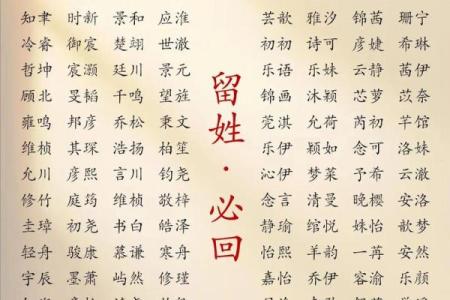 知聿 时新 景和 应淮
冷睿 御宸 楚翊 世澈
哲坤 宸灏 廷川 景元
顾北 旻韬 千鸣 望旌
雍鸣 邦彦 乔松 秉文
维桢 其琛 浩扬 柏笙
允川 彦熙 言川 钧尧
修竹 庭筠 维桢 敬梓
圭璋 初尧 书白 皓泽
轻舟 骏康 慕谦 寒舟
宇辰 墨萧 修瑾
留姓·必回
芸歆 雅汐 锦茜 珊宁
初初 诗可 彦婕 希琳
乐语 乐姝 云静 茜伊
锦画 沐颖 芯萝 苡奈
莞淇 允荷 芮初 羊馆
乐伊 颖如 念可 洛姝
沁伊 梦莱 予希 云澈
念言 清曼 晚樱 安洛
静瑜 绾悦 姝妁 歆梦
怡熙 羊韵 一苒 安然
嘉怡 乔伊 容渝 乐颜